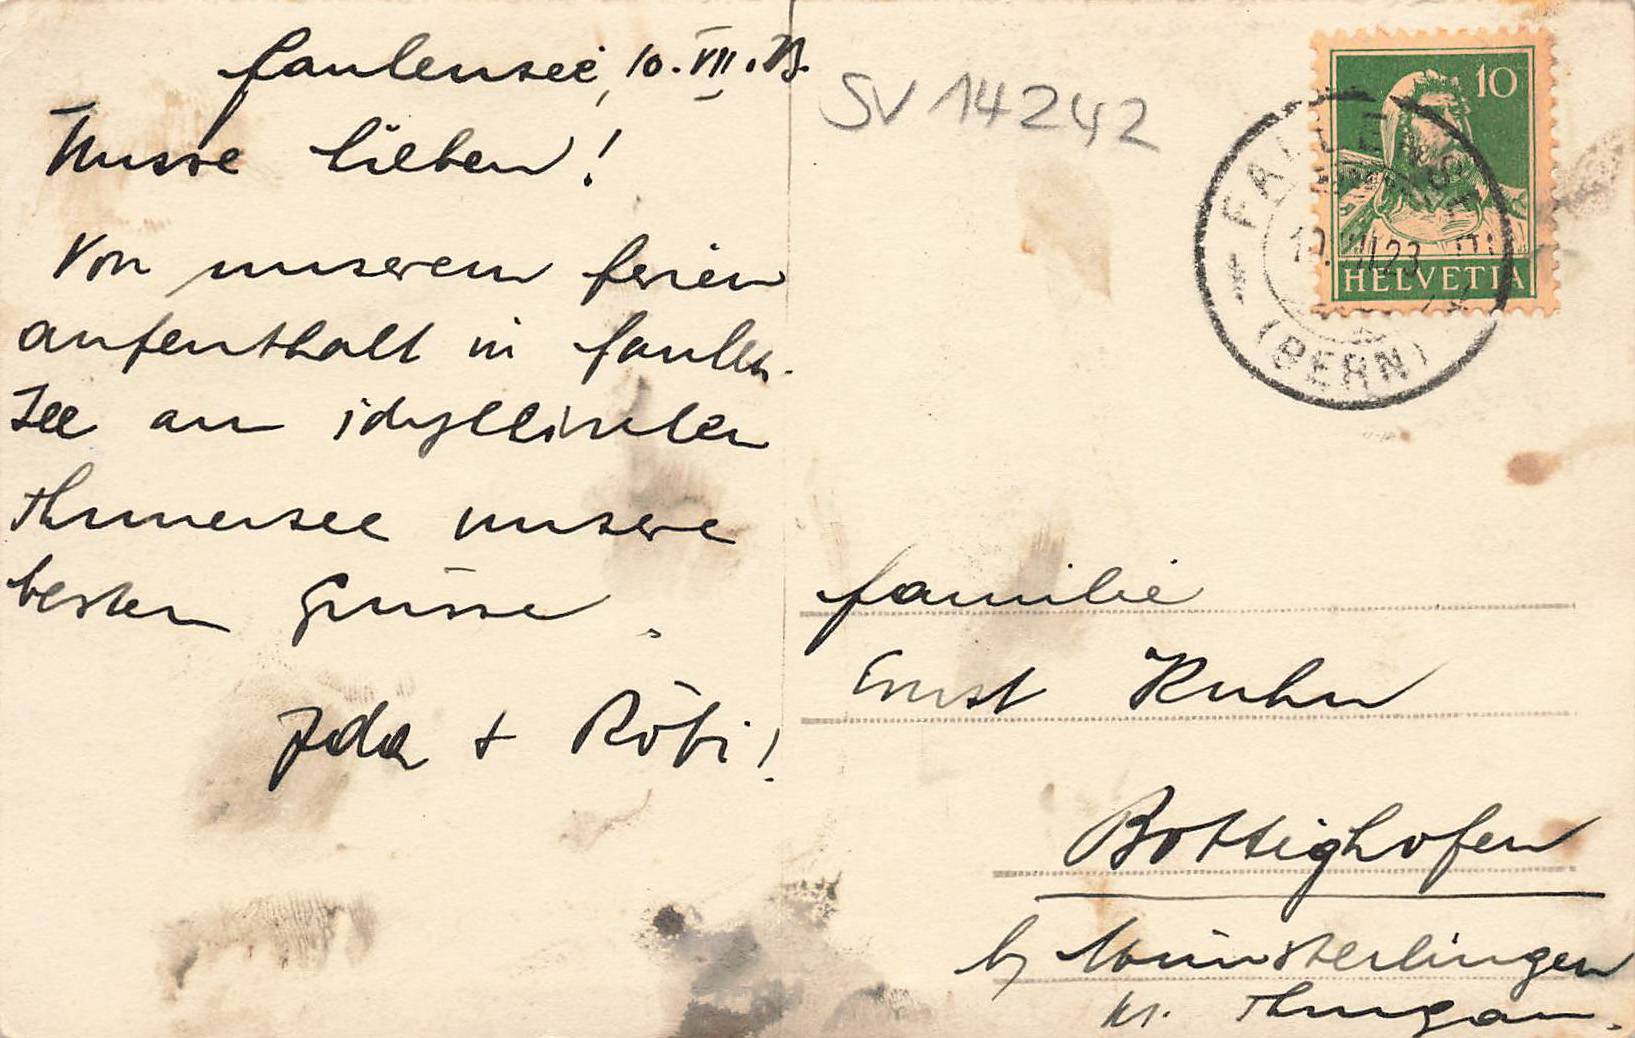 Faulensee, 10. VII. 23.
Unsre lieben!
Von unserem Ferien
aufenthalt in Faulen-
See am idyllischen
Thunersee unsere
besten Grüsse.
Ida + Röbi!
SV 14242
10
HELVETIA
FAULENSEE
10.VII.23
(BERN)
Familie
Ernst Kuhn
Bottighofen
b/ Münsterlingen
Kt. Thurgau.